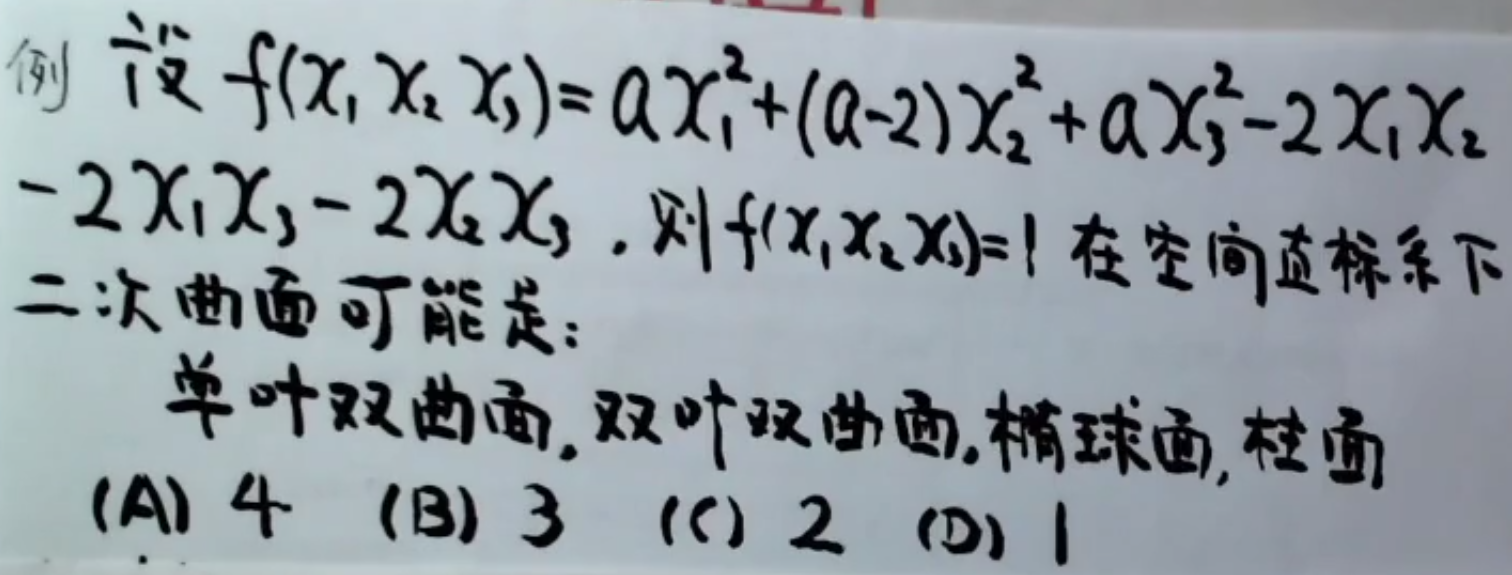 例 设 f(x₁ x₂ x₃)=ax₁²+(a-2)x₂²+ax₃²-2x₁x₂
-2x₁x₃-2x₂x₃.则f(x₁x₂x₃)=1 在空间直标系下
二次曲面可能是:
单叶双曲面.双叶双曲面.椭球面,柱面
(A) 4 (B) 3 (C) 2 (D) 1